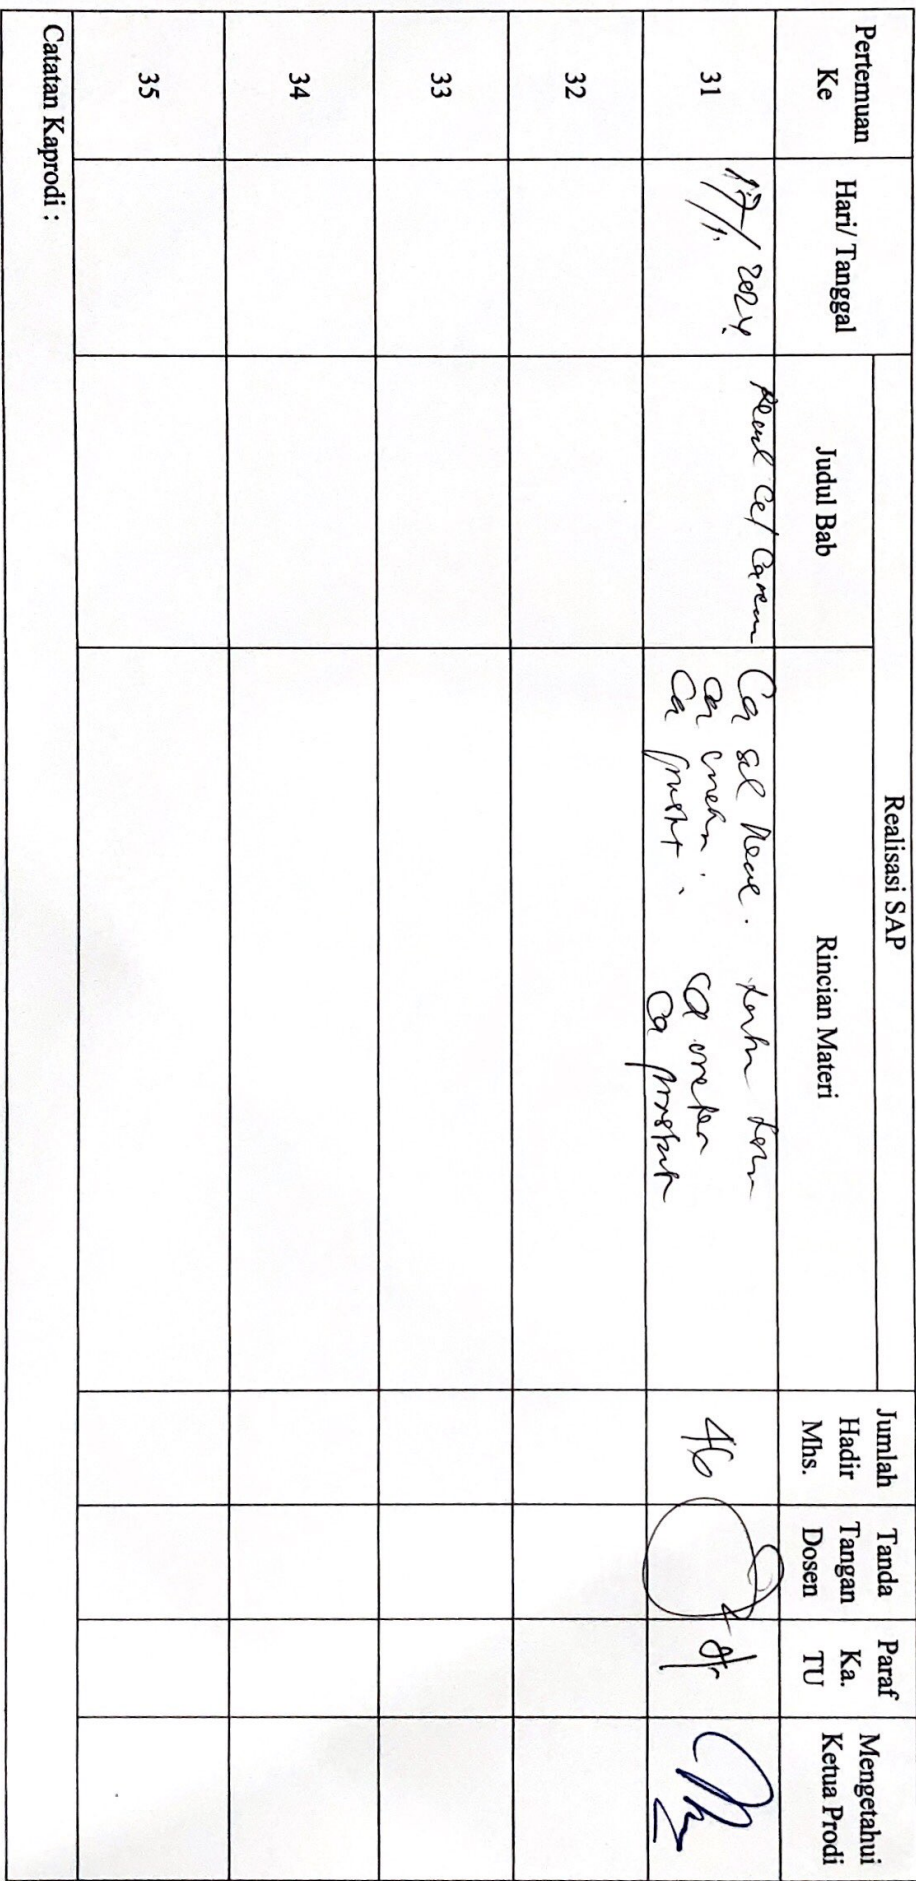 Pertemuan Ke
Hari/ Tanggal
Realisasi SAP
Judul Bab
Rincian Materi
Jumlah Hadir Mhs.
Tanda Tangan Dosen
Paraf Ka. TU
Mengetahui Ketua Prodi
31
17/1 2024
Renal Cel Carcin
Ca sel Renal.
Ca
Ca
Ca
Ca prostat
46
32
33
34
35
Catatan Kaprodi :